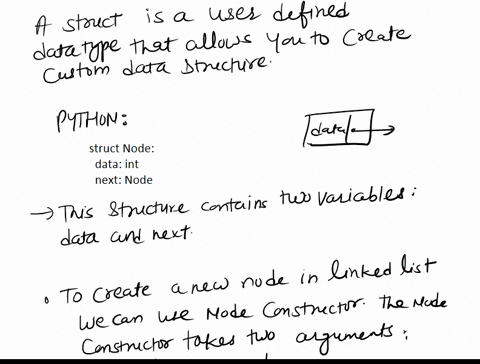 A struct is a user defined
datatype that allows you to create
Custom data structure.
PYTHON:
data
struct Node:
data: int
next: Node
→ This structure contains two variables:
data and next.
• To create a new node in linked list
we can use Node Constructor. The Node
Constructor takes two arguments: